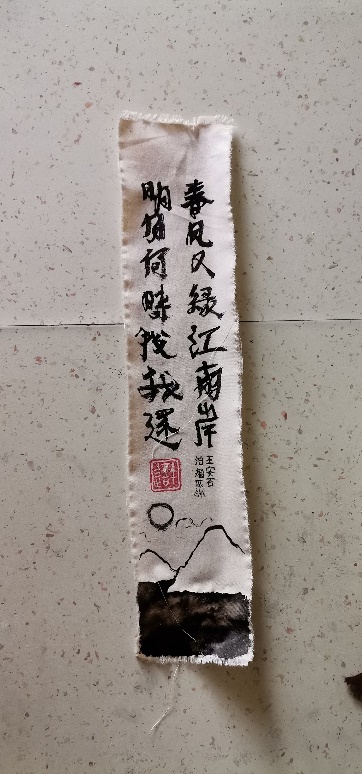 春风又绿江南岸
明月何時照我還
王安石
泊船瓜洲